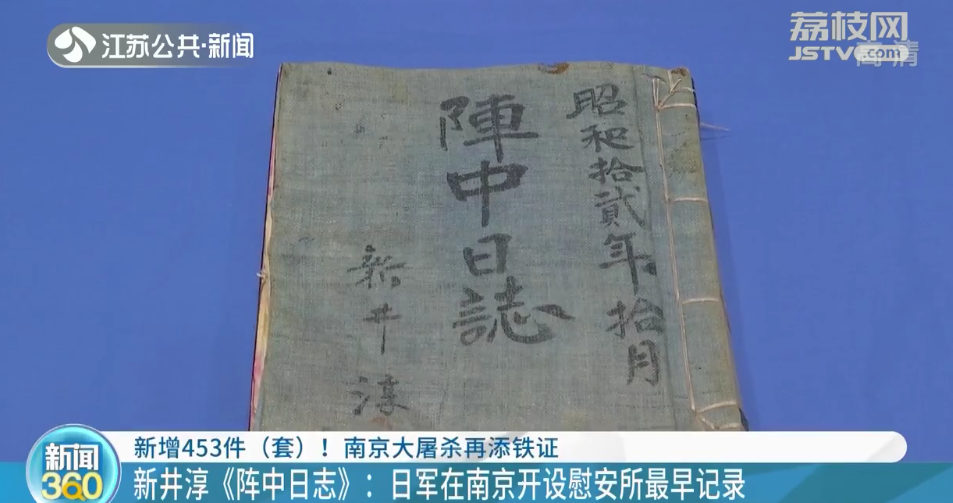 江苏公共·新闻
荔枝网
JSTV.com
高清
昭和拾貳年拾月
陣中日誌
新井淳
新闻
360
新增453件（套）！南京大屠杀再添铁证
新井淳《阵中日志》：日军在南京开设慰安所最早记录